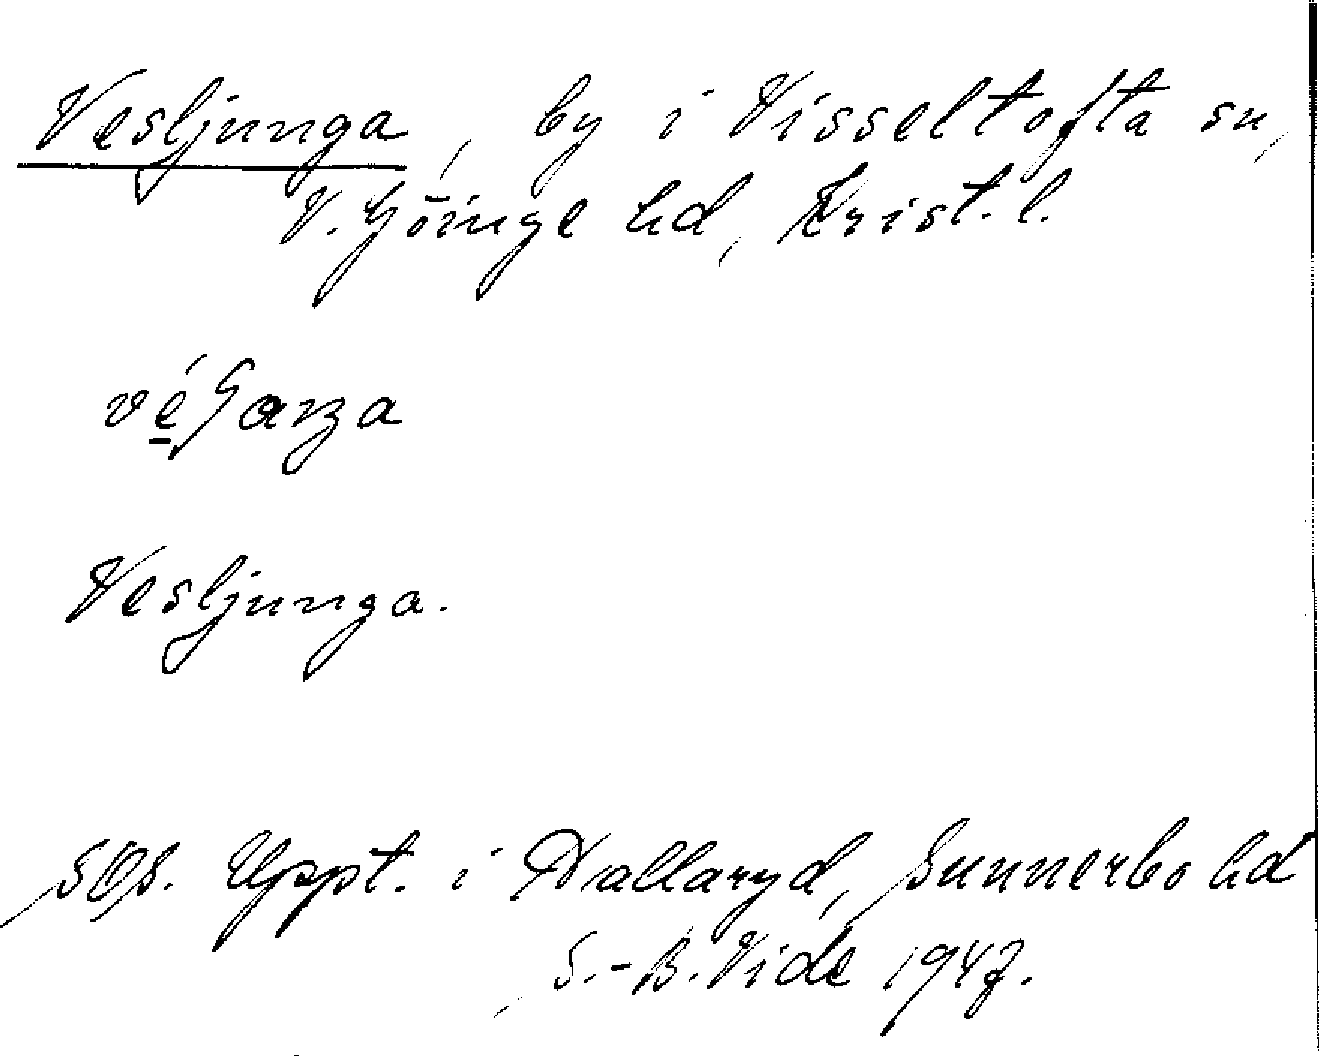 Vesljunga, by i Visseltofta sn,
V. Göinge hd, Krist. l.
Vesljunga.
SOS. Uppt. i Hallaryd, Sunnerbo hd
S.-B. Vide 1947.